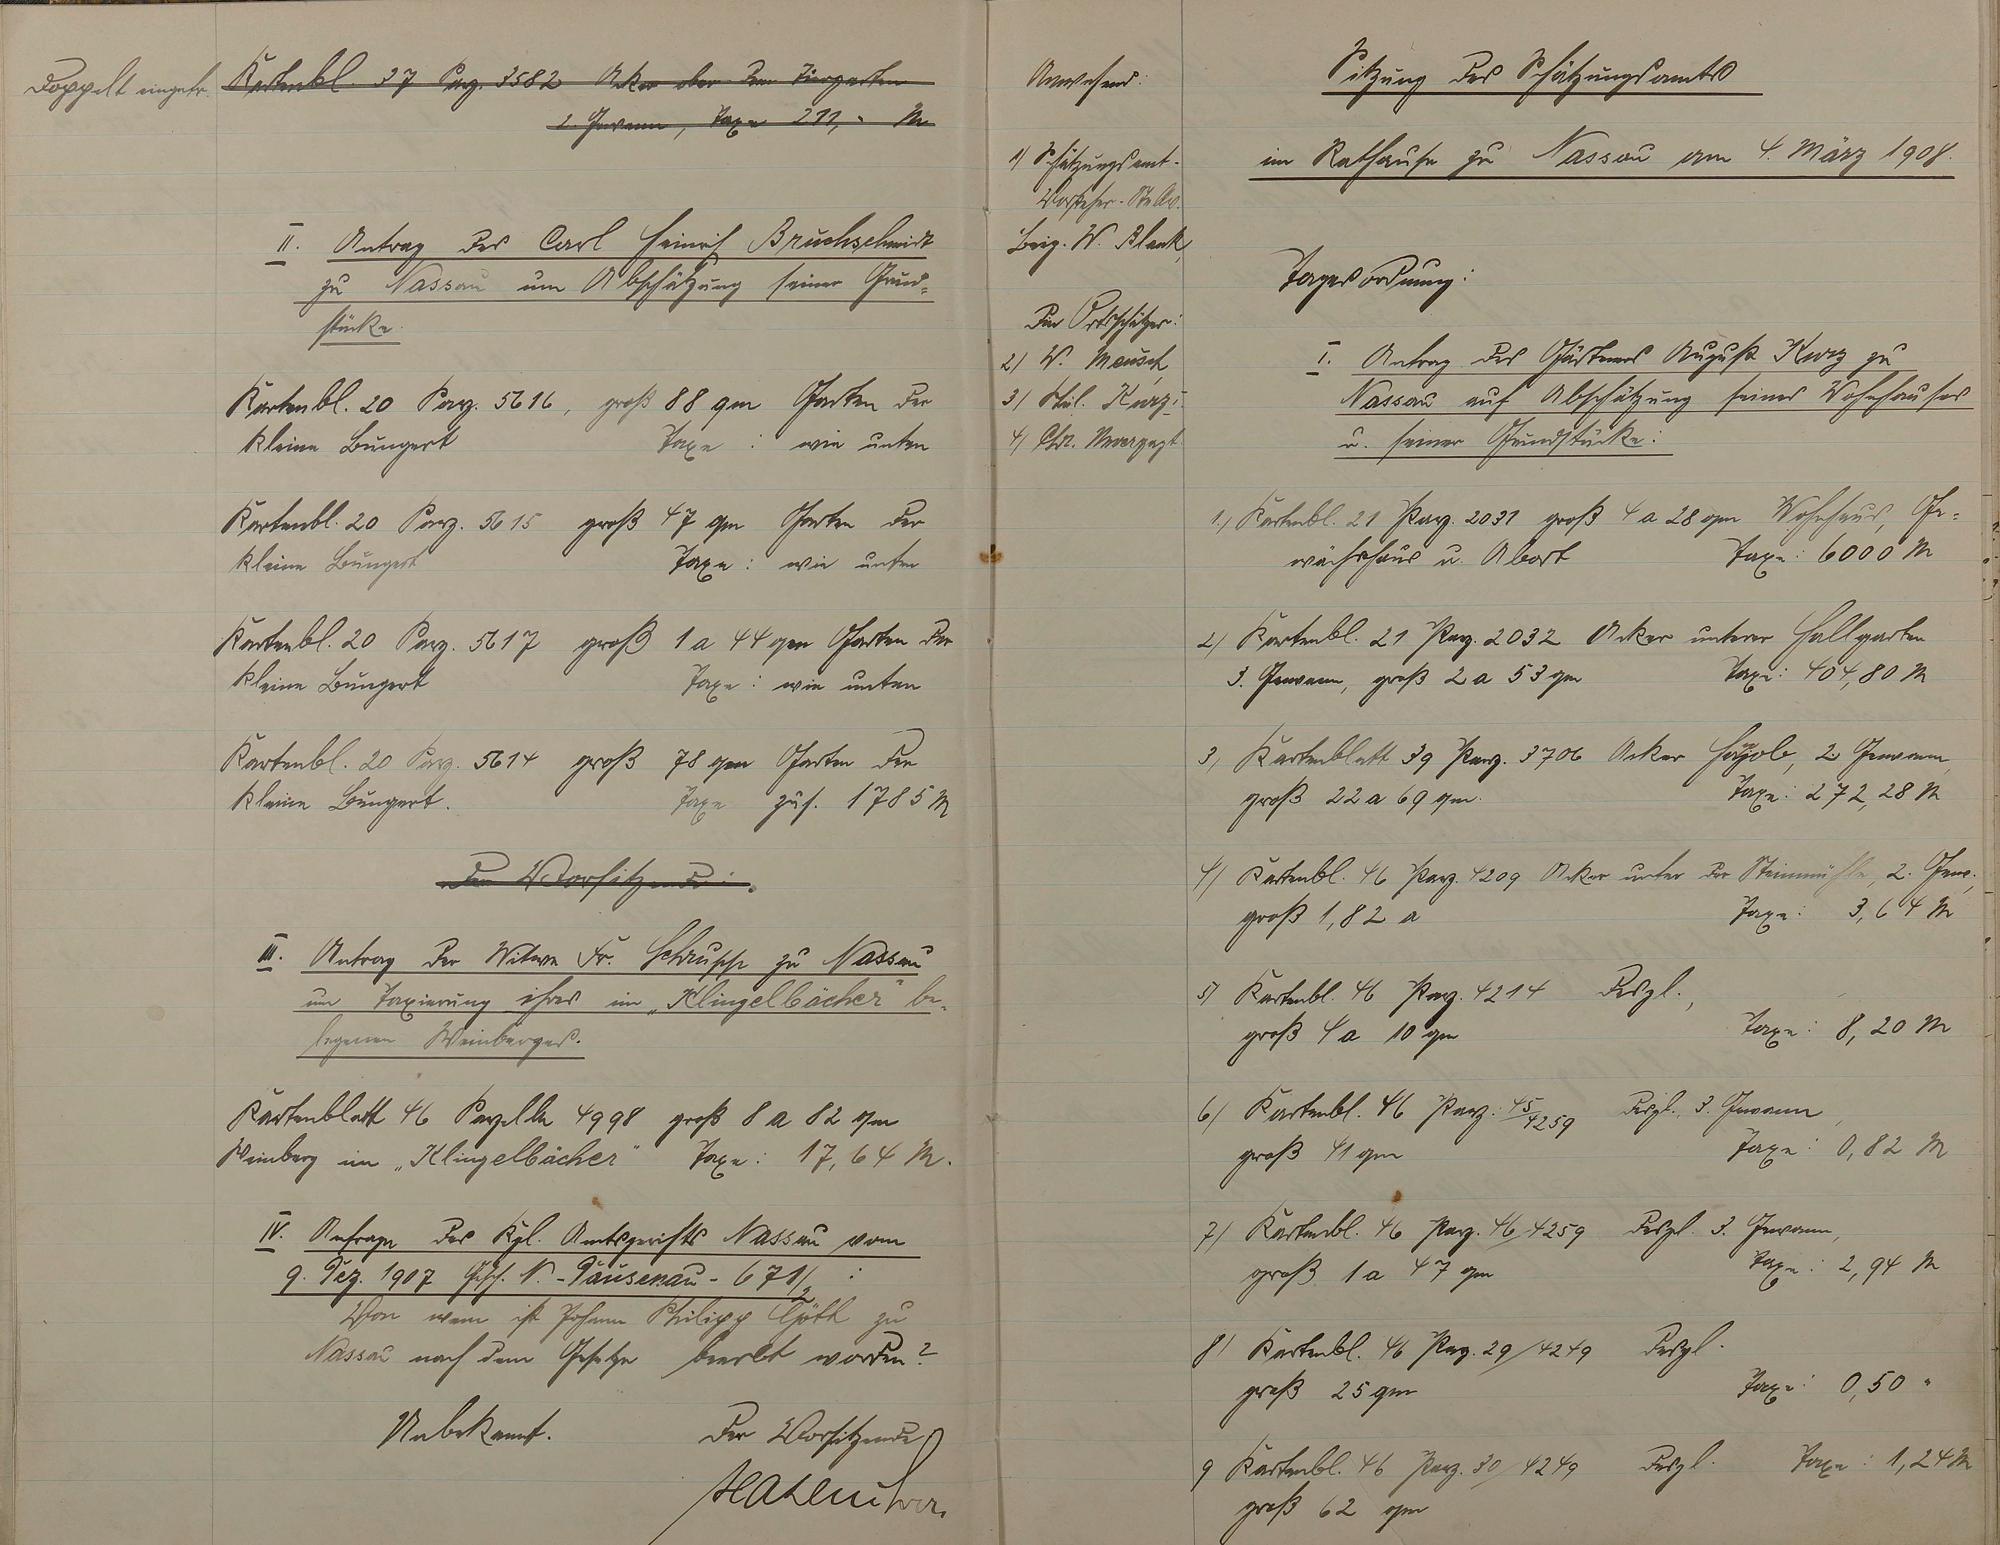 Doppelt eingetr.
Kartenbl. 37 Parz. 3582 Acker ober dem Tiergarten
2. Gewann, Taxe 211,- M
II. Antrag des Carl Heinrich Bruchschmidt
zu Nassau um Abschätzung seiner Grund-
stücke.
Kartenbl. 20 Parz. 5616, groß 88 qm Garten der
kleine Bungert Taxe : wie unten
Kartenbl. 20 Parz. 5615 groß 47 qm Garten der
kleine Bungert Taxe : wie unten
Kartenbl. 20 Parz. 5617 groß 1 a 44 qm Garten der
kleine Bungert Taxe : wie unten
Kartenbl. 20 Parz. 5614 groß 78 qm Garten der
kleine Bungert. Taxe zus. 1785 M
Der Vorsitzende:
III. Antrag der Witwe Fr. Schrupp zu Nassau
um Taxierung ihres im „Klingelbächer" be-
legenen Weinberges.
Kartenblatt 46 Parzelle 4998 groß 8 a 82 qm
Weinberg im „Klingelbächer" Taxe : 17,64 M.
IV. Anfrage des Kgl. Amtsgerichts Nassau vom
9. Dez. 1907 Gesch. N. - Dausenau - 671/2 :
Von wem ist Johann Philipp zu
Nassau nach dem Gesetze beerbt worden?
Unbekannt. Der Vorsitzende
Hasenclever.
Anwesend:
1) Schätzungsamt-
Vorsteher-Stellv.
Beig. W. Blank,
Die Ortsschätzer:
2) W. Meusch
3) Phil. Kurz I.
4) Chr. Unverzagt
Sitzung des Schätzungsamts
im Rathause zu Nassau am 4. März 1908.
Tagesordnung:
I. Antrag des Gärtners August Kurz zu
Nassau auf Abschätzung seines Wohnhauses
u. seiner Grundstücke:
1.) Kartenbl. 21 Parz. 2031 groß 4 a 28 qm Wohnhaus, Ge-
wächshaus u. Abort Taxe : 6000 M
2) Kartenbl. 21 Parz. 2032 Acker unterer Hallgarten
3. Gewann, groß 2 a 53 qm Taxe : 404,80 M
3) Kartenblatt 39 Parz. 3706 Acker 2. Gewann,
groß 22 a 69 qm. Taxe : 272,28 M
4) Kartenbl. 46 Parz. 4209 Acker unter der Steinmühle, 2. Gew.,
groß 1,82 a Taxe : 3,64 M
5) Kartenbl. 46 Parz. 4214 Desgl.,
groß 4 a 10 qm Taxe : 8,20 M
6) Kartenbl. 46 Parz. 45/4259 Desgl. 3. Gewann,
groß 41 qm Taxe : 0,82 M
7) Kartenbl. 46 Parz. 46/4259 Desgl. 3. Gewann,
groß 1 a 47 qm Taxe : 2,94 M
8) Kartenbl. 46 Parz. 29/4249 Desgl.
groß 25 qm Taxe : 0,50 "
9 Kartenbl. 46 Parz. 30/4249 Desgl. Taxe : 1,24 M
groß 62 qm